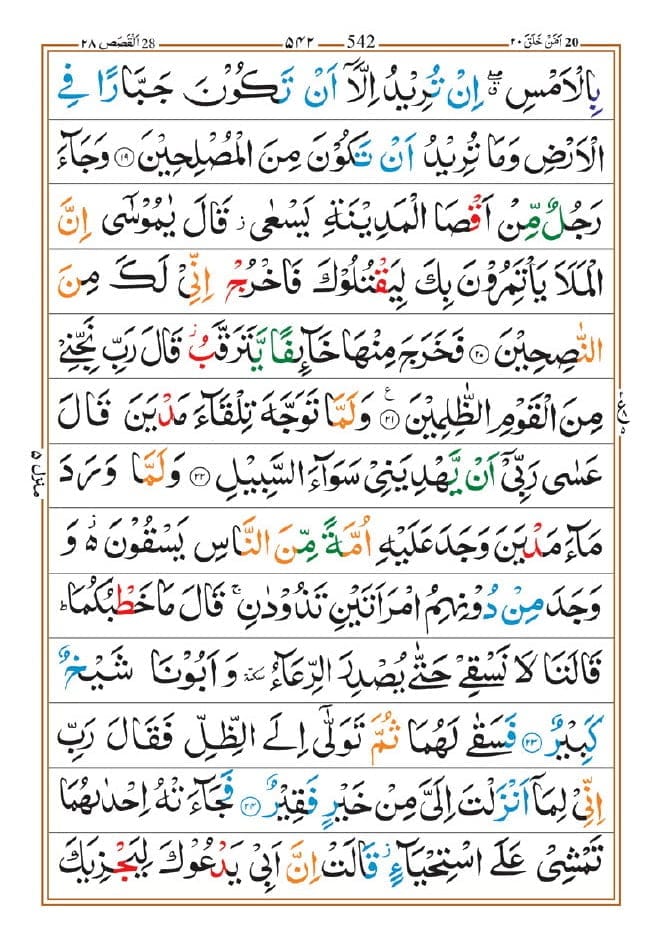 20 اَمَّنۡ خَلَقَ ۲۰ 542 ۵۴۲ 28 اَلۡقَصَصِ ۲۸
بِالۡاَمۡسِ ۖ ۗ اِنۡ تُرِيۡدُ اِلَّاۤ اَنۡ تَكُوۡنَ جَبَّارًا فِى
الۡاَرۡضِ وَمَا تُرِيۡدُ اَنۡ تَكُوۡنَ مِنَ الۡمُصۡلِحِيۡنَ ۱۹ وَجَآءَ
رَجُلٌ مِّنۡ اَقۡصَا الۡمَدِيۡنَةِ يَسۡعٰى ۫ قَالَ يٰمُوۡسٰٓى اِنَّ
الۡمَلَاَ يَاۡتَمِرُوۡنَ بِكَ لِيَقۡتُلُوۡكَ فَاخۡرُجۡ اِنِّىۡ لَـكَ مِنَ
النّٰصِحِيۡنَ ۲۰ فَخَرَجَ مِنۡهَا خَآٮِٕفًا يَّتَرَقَّبُ ۫ قَالَ رَبِّ نَجِّنِىۡ
مِنَ الۡقَوۡمِ الظّٰلِمِيۡنَ ۲۱ ع وَلَمَّا تَوَجَّهَ تِلۡقَآءَ مَدۡيَنَ قَالَ
عَسٰى رَبِّىۡۤ اَنۡ يَّهۡدِيَنِىۡ سَوَآءَ السَّبِيۡلِ ۲۲ وَلَمَّا وَرَدَ
مَآءَ مَدۡيَنَ وَجَدَ عَلَيۡهِ اُمَّةً مِّنَ النَّاسِ يَسۡقُوۡنَ ۬ وَ
وَجَدَ مِنۡ دُوۡنِهِمُ امۡرَاَتَيۡنِ تَذُوۡدٰنِ ۚ قَالَ مَا خَطۡبُكُمَا ؕ
قَالَتَا لَا نَسۡقِىۡ حَتّٰى يُصۡدِرَ الرِّعَآءُ سكتة وَاَبُوۡنَا شَيۡخٌ
كَبِيۡرٌ ۲۳ فَسَقٰى لَهُمَا ثُمَّ تَوَلّٰٓى اِلَى الظِّلِّ فَقَالَ رَبِّ
اِنِّىۡ لِمَاۤ اَنۡزَلۡتَ اِلَىَّ مِنۡ خَيۡرٍ فَقِيۡرٌ ۲۴ فَجَآءَتۡهُ اِحۡدٰٮهُمَا
تَمۡشِىۡ عَلَى اسۡتِحۡيَآءٍ ۫ قَالَتۡ اِنَّ اَبِىۡ يَدۡعُوۡكَ لِيَجۡزِيَكَ
منزل ۵